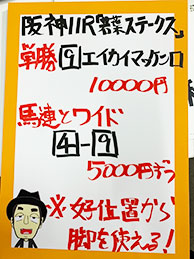 阪神11R「若葉ステークス」
単勝 ⑤エイカイマッケンロ
10000円
馬連とワイド
④-⑨
5000円ずつ
※好位置から
脚を使える！